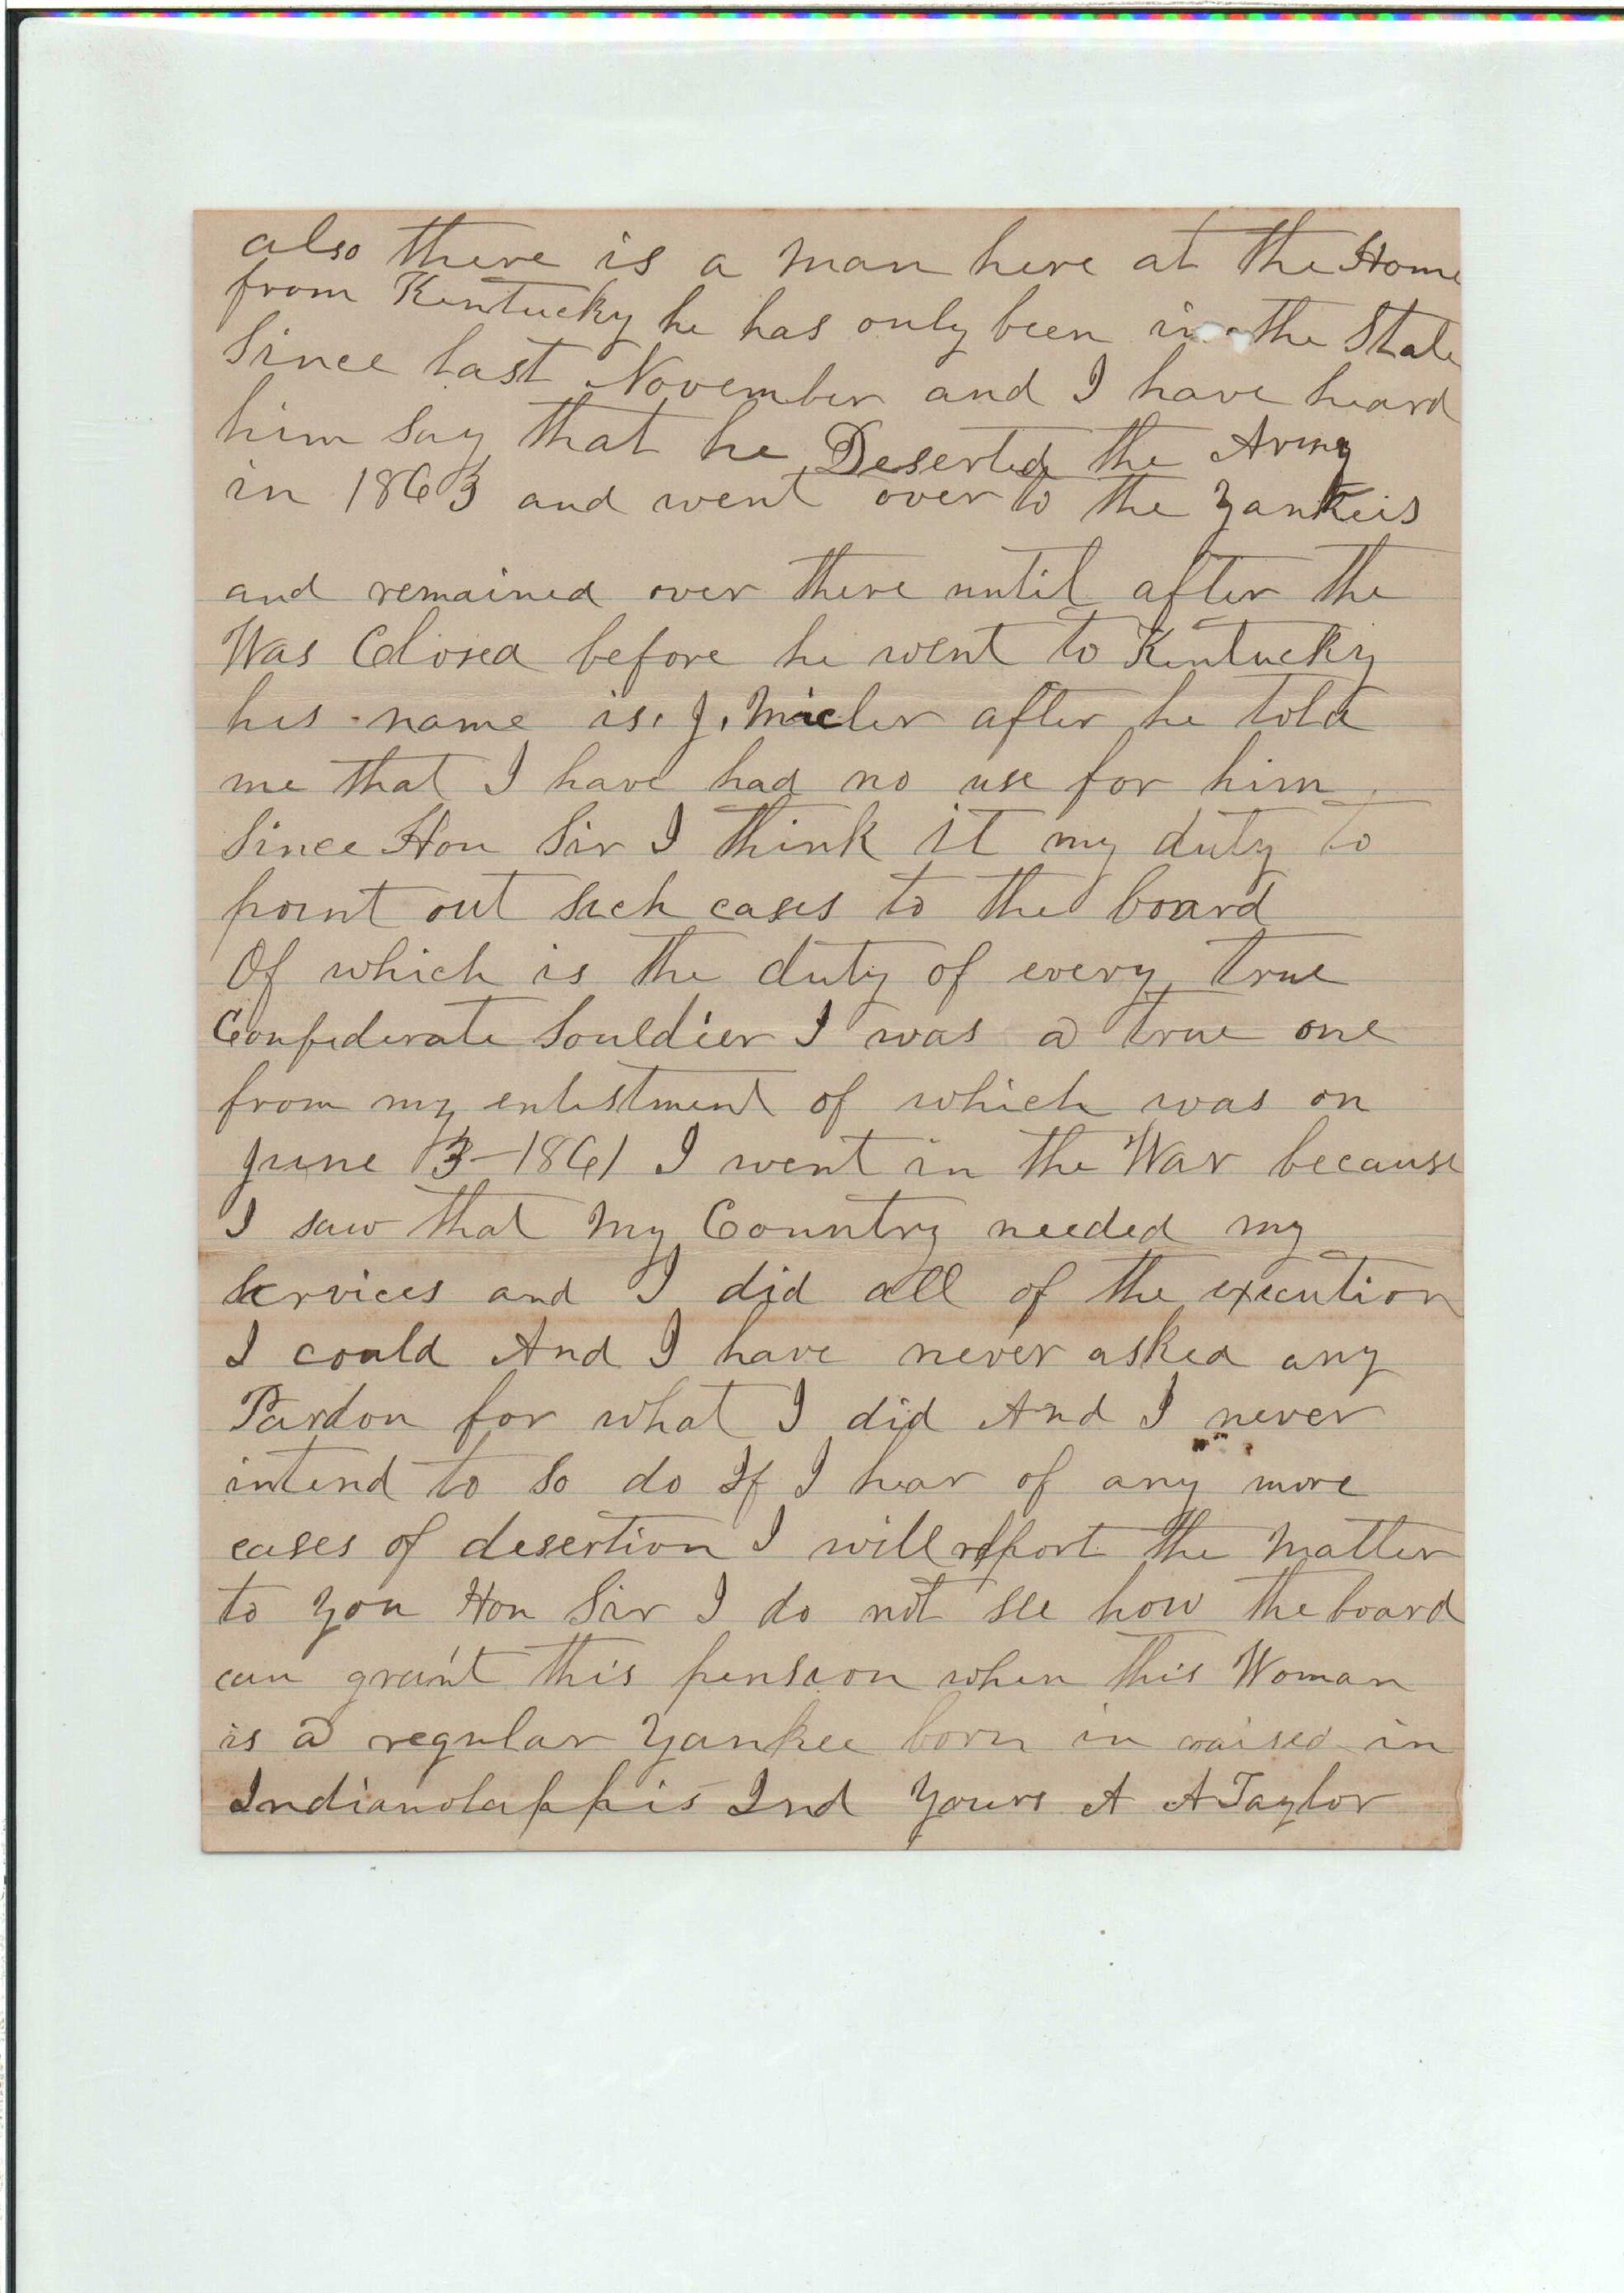 also there is a man here at the Home
from Kentucky he has only been in the State
Since last November and I have heard
him say that he Deserted the Army
in 1863 and went over to the Yankeis
and remained over there until after the
Was Closed before he went to Kentucky
his name is. J. after he told
me that I have had no use for him
Since Hon Sir I think it my duty to
point out such cases to the board
Of which is the duty of every true
Confederate Souldier I was a true one
from my enlistment of which was on
June 3-1861 I went in the War because
I saw that my Country needed my
services and I did all of the execution
I could And I have never asked any
Pardon for what I did And I never
intend to so do If I hear of any more
cases of desertion I will report the matter
to you Hon Sir I do not see how the board
can grant this pension when this Woman
is a regular Yankee born in raised in
Indianolappis Ind Yours A A Taylor